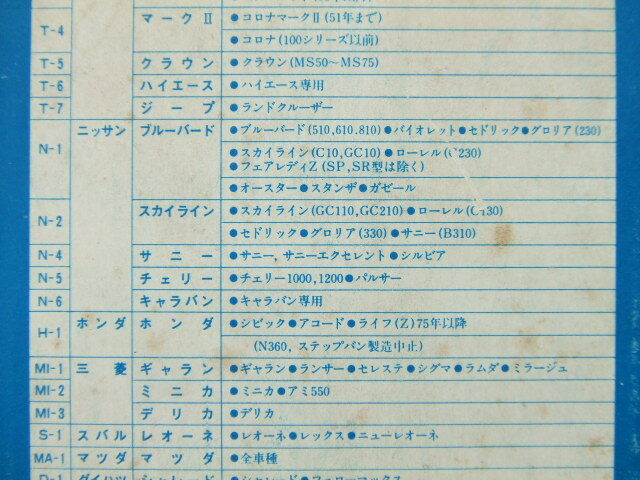 T-4 マークⅡ ●コロナマークⅡ(51年まで)
●コロナ(100シリーズ以前)
T-5 クラウン ●クラウン(MS50〜MS75)
T-6 ハイエース ●ハイエース専用
T-7 ジープ ●ランドクルーザー
N-1 ニッサン ブルーバード ●ブルーバード(510,610.810)●バイオレット●セドリック●グロリア(230)
●スカイライン(C10,GC10)●ローレル(C230)
●フェアレディZ(SP,SR型は除く)
●オースター●スタンザ●ガゼール
N-2 スカイライン ●スカイライン(GC110,GC210)●ローレル(C130)
●セドリック●グロリア(330)●サニー(B310)
N-4 サニー ●サニー,サニーエクセレント●シルビア
N-5 チェリー ●チェリー1000,1200●パルサー
N-6 キャラバン ●キャラバン専用
H-1 ホンダ ホンダ ●シビック●アコード●ライフ(Z)75年以降
(N360,ステップバン製造中止)
MI-1 三菱 ギャラン ●ギャラン●ランサー●セレステ●シグマ●ラムダ●ミラージュ
MI-2 ミニカ ●ミニカ●アミ550
MI-3 デリカ ●デリカ
S-1 スバル レオーネ ●レオーネ●レックス●ニューレオーネ
MA-1 マツダ マツダ ●全車種
D-1 ダイハツ シャレード ●シャレード●フェローマックス